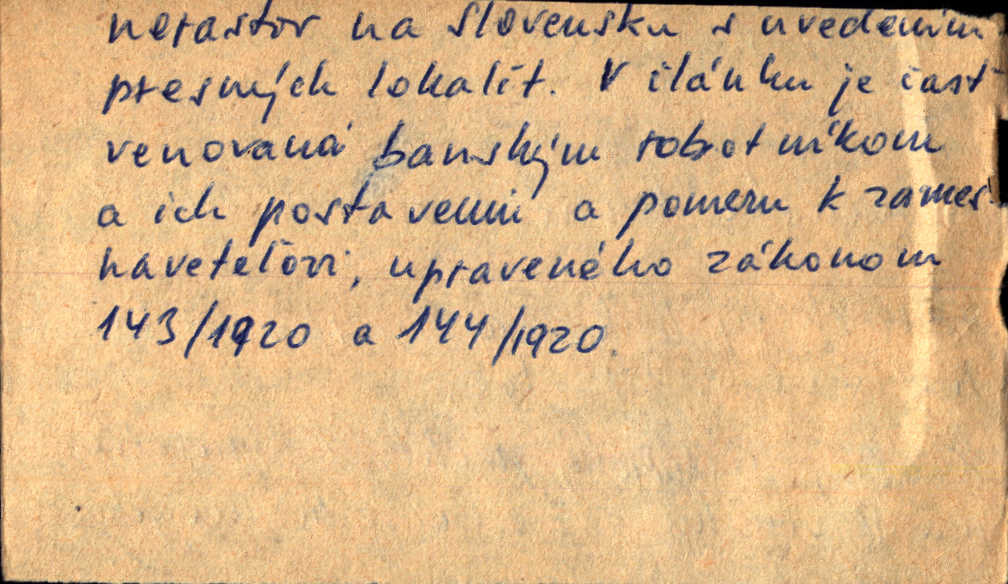 nerastov na Slovensku s uvedením
presných lokalít. V článku je časť
venovaná banským robotníkom
a ich postavení a pomeru k zames-
návateľovi, upraveného zákonom
143/1920 a 144/1920.